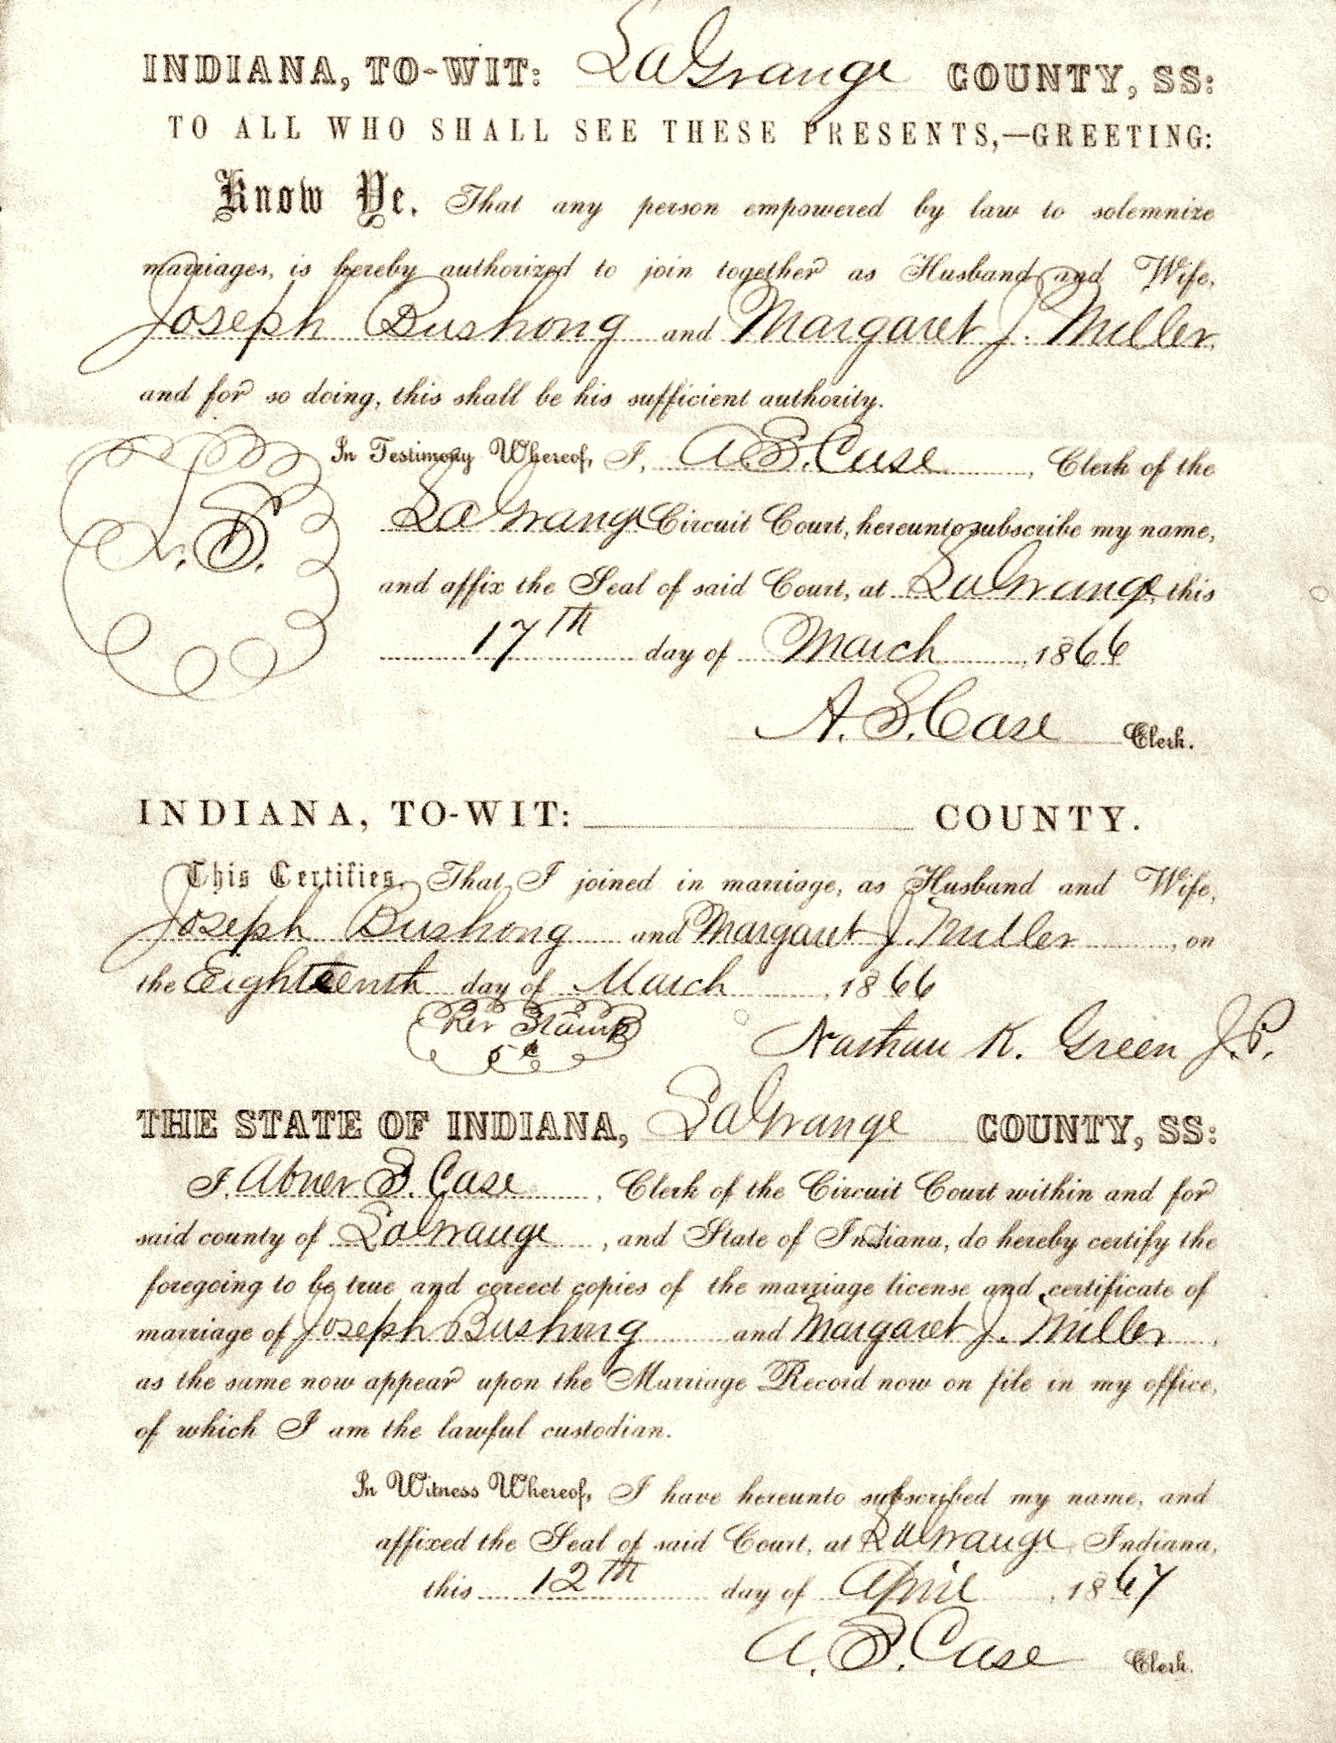 INDIANA, TO-WIT: LaGrange COUNTY, SS:
TO ALL WHO SHALL SEE THESE PRESENTS,—GREETING:
Know Ye, That any person empowered by law to solemnize
marriages, is hereby authorized to join together as Husband and Wife,
Joseph Bushong and Margaret J. Miller,
and for so doing, this shall be his sufficient authority.
In Testimony Whereof, I, A. S. Case, Clerk of the
LaGrange Circuit Court, hereunto subscribe my name,
L.S.
and affix the Seal of said Court, at LaGrange, this
17th day of March, 1866
A. S. Case Clerk.
INDIANA, TO-WIT: COUNTY.
This Certifies, That I joined in marriage, as Husband and Wife,
Joseph Bushong and Margaret J. Miller, on
the Eighteenth day of March, 1866
Rev Stamp
5 c
Nathan K. Green J.P.
THE STATE OF INDIANA, LaGrange COUNTY, SS:
I, Abner S. Case, Clerk of the Circuit Court within and for
said county of LaGrange, and State of Indiana, do hereby certify the
foregoing to be true and coreect copies of the marriage license and certificate of
marriage of Joseph Bushong and Margaret J. Miller,
as the same now appear upon the Marriage Record now on file in my office,
of which I am the lawful custodian.
In Witness Whereof, I have hereunto subscribed my name, and
affixed the Seal of said Court, at LaGrange, Indiana,
this 12th day of April, 1867
A. S. Case Clerk.